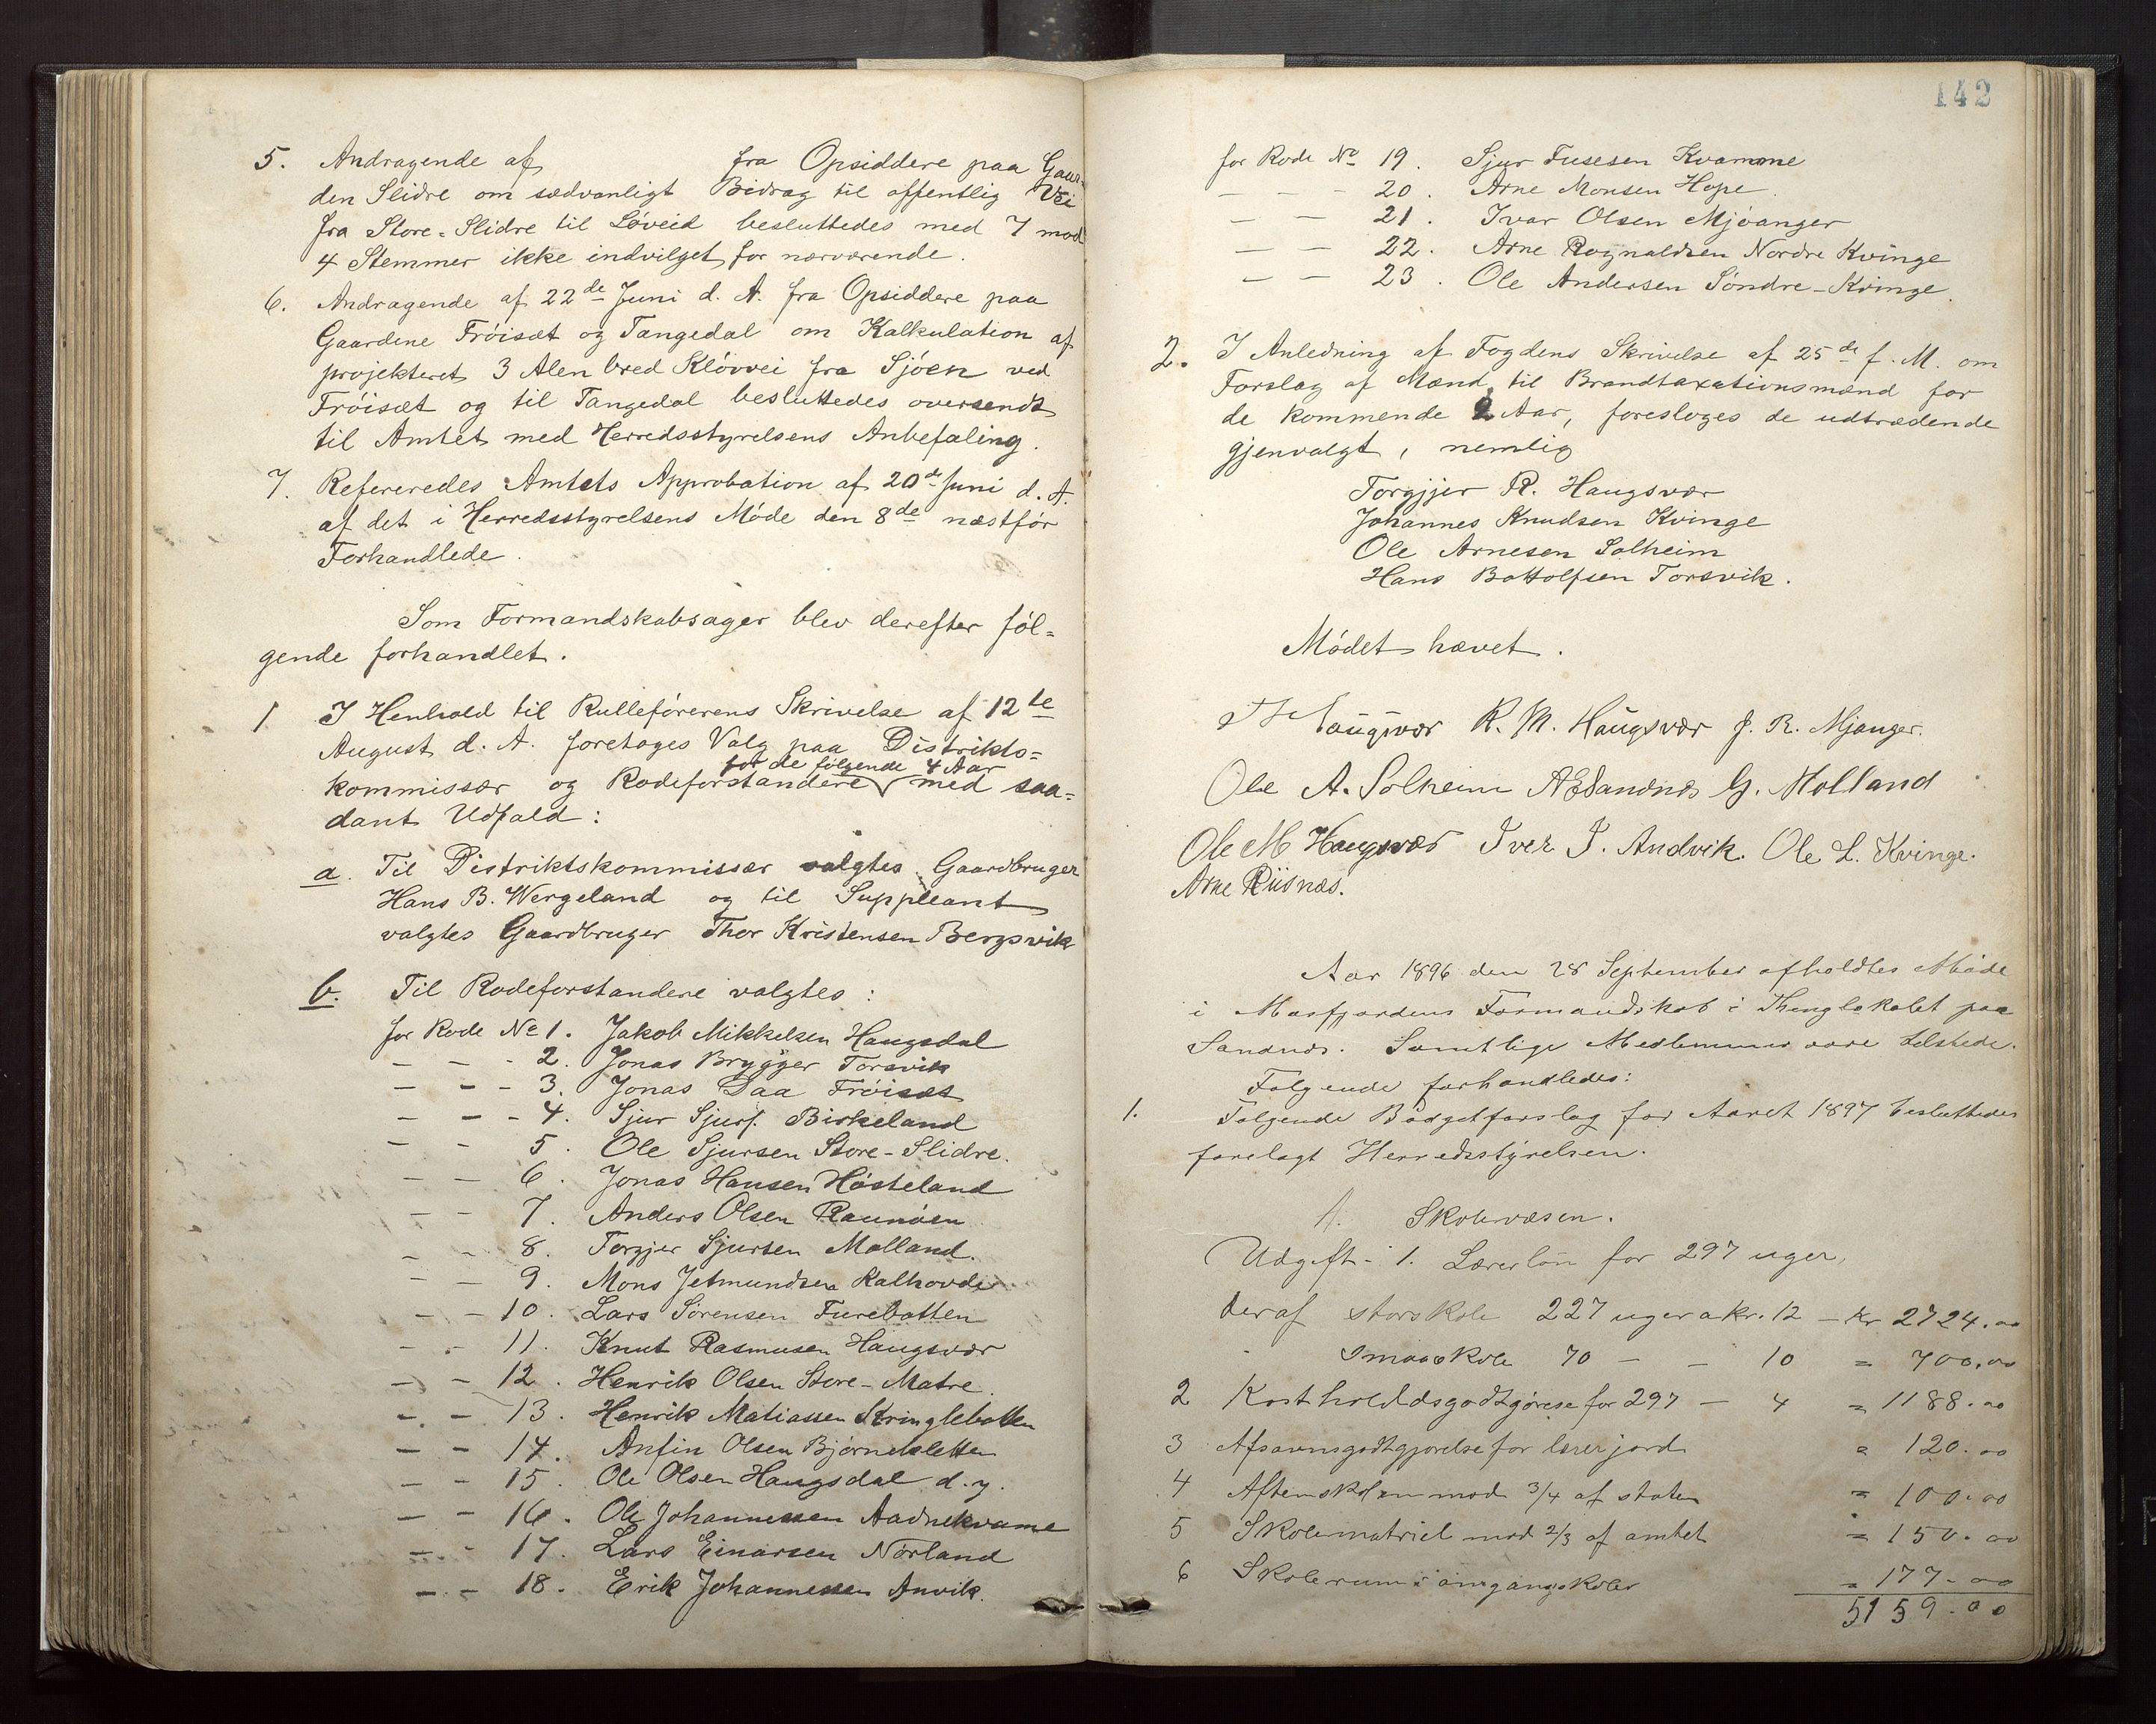 5. Andragende af fra Opsiddere paa Gaar-
den Slidre om sædvanligt Bidrag til offentlig Vei
fra Store-Slidre til Løveid besluttedes med 7 mod
4 Stemmer ikke indvilget for nærværende.
6. Andragende af 22de Juni d. A. fra Opsiddere paa
Gaardene Frøiset og Tangedal om Kalkulation af
projekteret 3 Alen bred Kløvvei fra Sjøen ved
Frøiset og til Tangedal besluttedes oversendt
til Amtet med Herredsstyrelsens Anbefaling.
7. Refereredes Amtets Approbation af 20de Juni d. A.
af det i Herredsstyrelsens Møde den 8de næstfør
Forhandlede.
Som Formandskabsager blev derefter føl=
gende forhandlet.
1 I Henhold til Rulleførerens Skrivelse af 12te
August d. A. foretoges Valg paa Distrikts=
for de følgende 4 Aar
kommissær og Rodeforstandere med saa=
dant Udfald:
a. Til Distriktskommissær valgtes Gaardbruger
Hans B. Wergeland og til Suppleant
valgtes Gaardbruger Thor Kristensen Bergsvik
b. Til Rodeforstandere valgtes:
for Rode No 1. Jakob Mikkelsen Haugsdal
— — - 2. Jonas Brygger Torsvik
— — - 3. Jonas Daa Frøiset
— — - 4. Sjur Sjurs. Birkeland
— — 5. Ole Sjursen Store-Slidre.
— — 6. Jonas Hansen Høsteland
— — 7. Anders Olsen Raunøen
— — 8. Torgjer Sjursen Molland.
— — 9. Mons Jetmundsen Kalhovde
— — 10. Lars Sørensen Furebotten
— — 11. Knut Rasmusen Haugsvær
— — 12. Henrik Olsen Store-Matre.
— — 13. Henrik Matiassen Kringlebotten
— — 14. Anfin Olsen Bjørnesletten
— — 15. Ole Olsen Haugsdal d. y.
— — 16. Ole Johannessen Aadnekvame
— — 17. Lars Einarsen Nørland
— — 18. Erik Johannessen Anvik.
142
for Rode No 19. Sjur Fusesen Kvamme
— — — 20. Arne Monsen Hope.
— — 21. Ivar Olsen Mjøanger
— — 22. Arne Rognaldsen Nordre Kvinge
— — 23. Ole Andersen Søndre-Kvinge.
2. I Anledning af Fogdens Skrivelse af 25de f. M. om
Forslag af Mænd til Brandtaxationsmænd for
de kommende 2 Aar, foresloges de udtrædende
gjenvalgt, nemlig
Torgjer R. Haugsvær
Johannes Knudsen Kvinge
Ole Arnesen Solheim
Hans Bottolfsen Torsvik.
Mødet hævet.
Haugsvær R. M. Haugsvær J. R. Mjanger.
Ole A. Solheim A E Sandnæs G. Molland
Ole M Haugsvær Iver I. Andvik. Ole L. Kvinge.
Arne Riisnæs.
Aar 1896 den 28 September afholdtes Møde
i Masfjordens Formandskab i Thinglokalet paa
Sandnæs. Samtlige Medlemmer vare tilstede.
Følgende forhandledes:
1. Følgende Budgetforslag for Aaret 1897 besluttedes
forelagt Herredsstyrelsen.
A. Skolevæsen.
Udgift. 1. Lærerløn for 297 uger,
deraf storskole 227 uger a kr. 12 — kr 2724.00
" Smaaskole 70 — — 10 = 700.00
2 Kostholdsgodtgørese for 297 — 4 = 1188.00
3 Afsavnsgodtgjørelse for lærerjord = 120.00
4 Aftenskolen mod 3/4 af staten = 100.00
5 Skolematriel mod 2/3 af amtet = 150.00
6 Skolerum i omgangsskoler = 177.00
5159.00